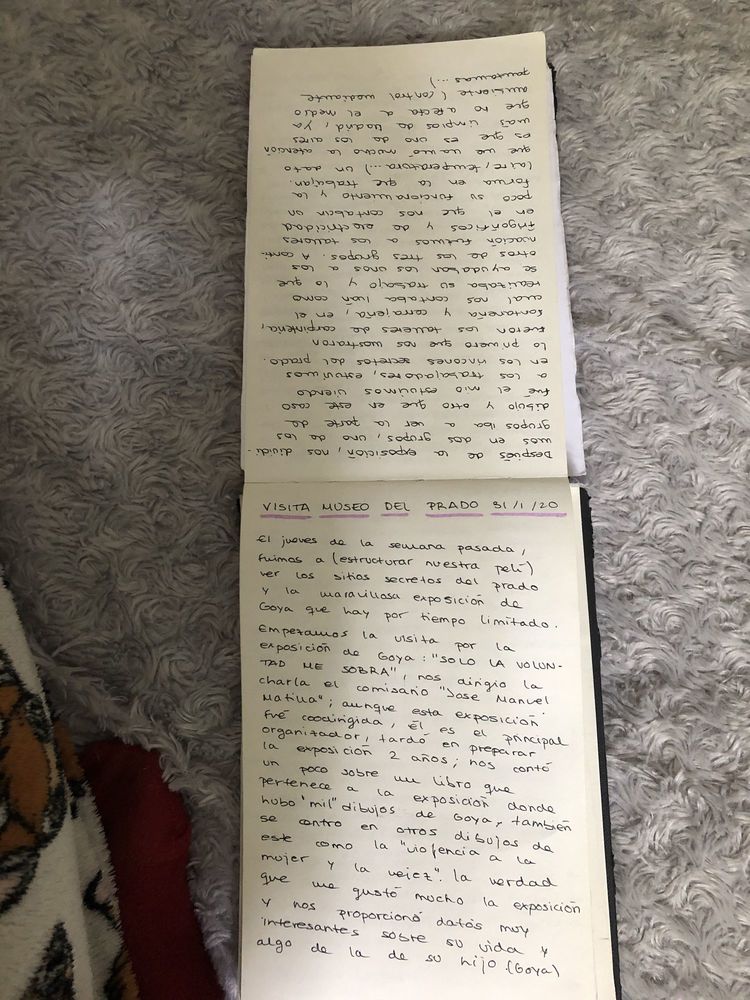 VISITA MUSEO DEL PRADO 31/1/20
El jueves de la semana pasada,
fuimos a (estructurar nuestra peli)
ver los sitios secretos del prado
y la maravillosa exposición de
Goya que hay por tiempo limitado.
Empezamos la visita por la
exposición de Goya: "SOLO LA VOLUN-
TAD ME SOBRA", nos dirigio la
charla el comisario "Jose Manuel
Matilla"; aunque esta exposición
fué coodirigida, Él es el principal
organizador, tardó en preparar
la exposición 2 años; nos contó
un poco sobre un libro que
pertenece a la exposición donde
hubo "mil" dibujos de Goya, también
se centro en otros dibujos de
este como la "violencia a la
mujer y la vejez". La verdad
que me gustó mucho la exposición
y nos proporcionó datos muy
interesantes sobre su vida y
algo de la de su hijo (Goya)
Después de la exposición, nos dividi-
mos en dos grupos, uno de los
grupos iba a ver la parte de
dibujo y otro que en este caso
fué el mio estuvimos viendo
a los trabajadores, estuvimos
en los rincones secretos del prado.
Lo primero que nos mostraron
fueron los talleres de carpintería,
fontanería y cerrajería, en el
cual nos contaba Iván como
realizaba su trabajo y lo que
se ayudaban los unos a los
otros de los tres grupos. A conti-
nuación fuimos a los talleres
frigoríficos y de electricidad
en el que nos contaban un
poco su funcionamiento y la
forma en la que trabajan.
(aire, temperatura...) un dato
que me llamó mucho la atención
es que es uno de los aires
mas limpios de Madrid, ya
que no afecta a el medio
ambiente (control mediante
pantallas...)